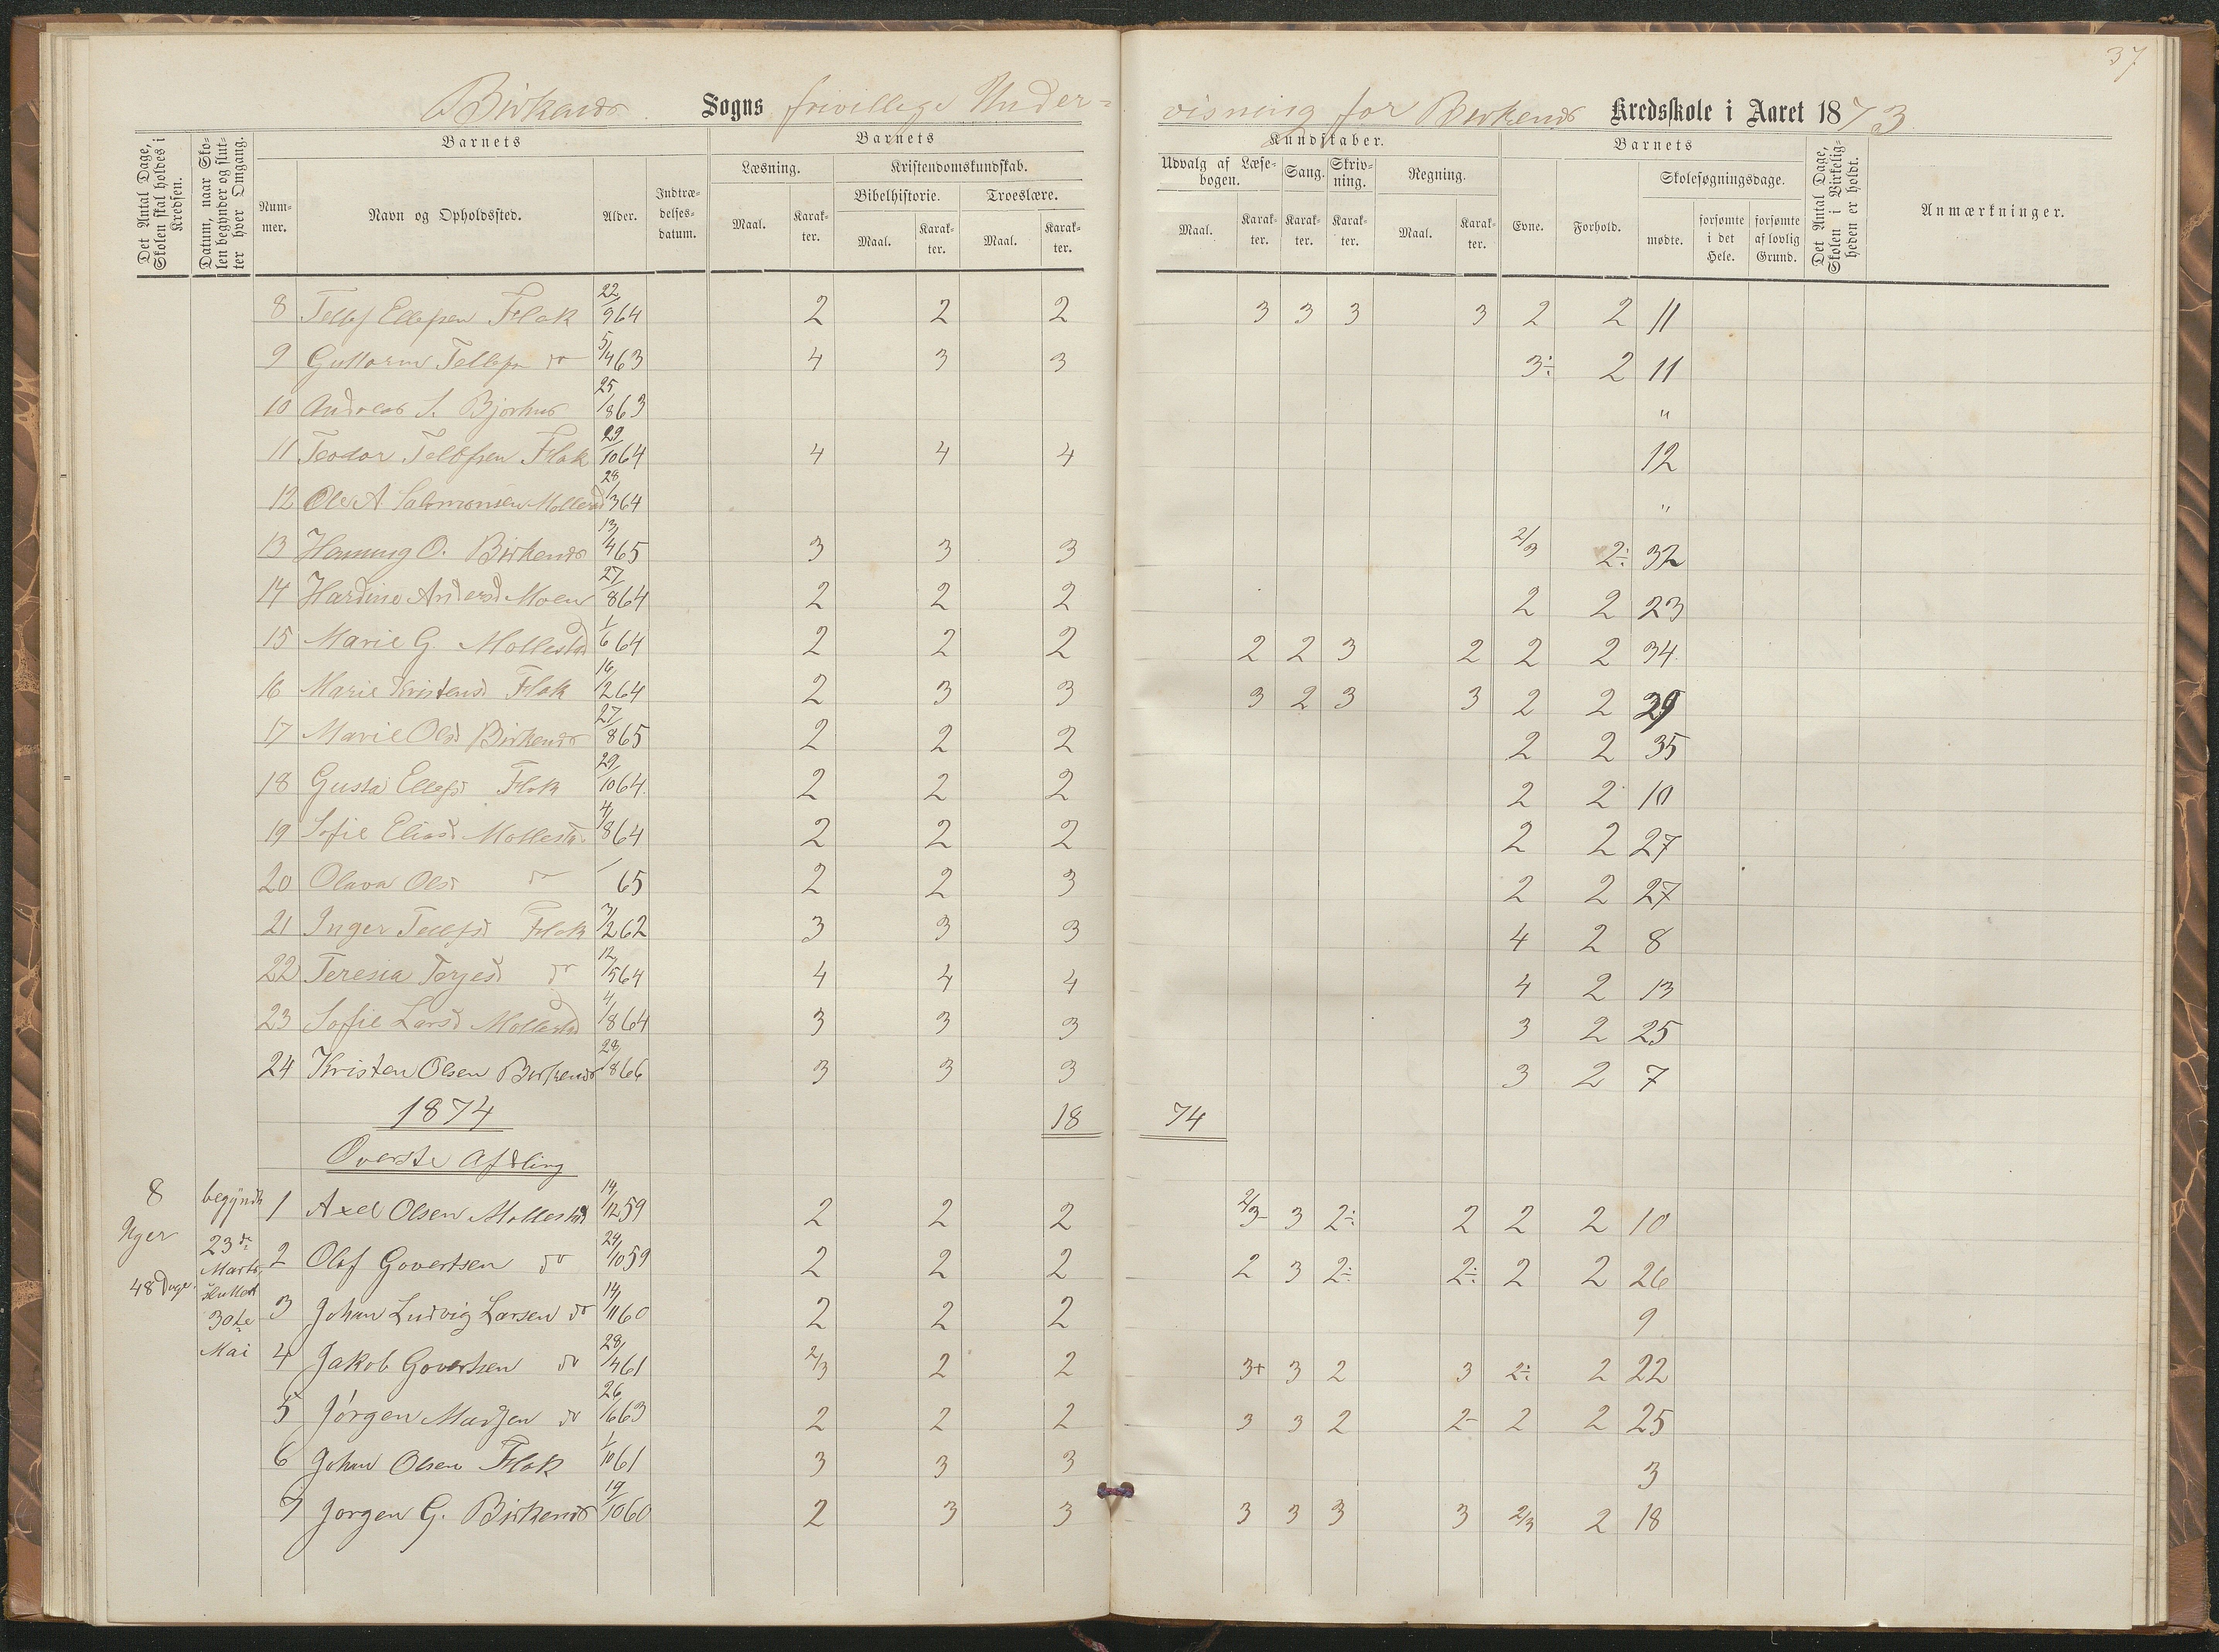 37
Birkenes Sogns frivillige Under=
visning for Birkenes Kredsskole i Aaret 1873
Det Antal Dage, Skolen skal holdes i Kredsen.
Datum, naar Skolen begynder og slutter hver Omgang.
Barnets
Nummer.
Navn og Opholdssted.
Alder.
Indtrædelsesdatum.
Barnets
Læsning.
Kristendomskundskab.
Bibelhistorie.
Troeslære.
Maal.
Karakter.
Maal.
Karakter.
Maal.
Karakter.
Kundskaber.
Udvalg af Læsebogen.
Sang.
Skrivning.
Regning.
Maal.
Karakter.
Karakter.
Karakter.
Maal.
Karakter.
Barnets
Evne.
Forhold.
Skolesøgningsdage.
mødte.
forsømte i det Hele.
forsømte af lovlig Grund.
Det Antal Dage, Skolen i Virkeligheden er holdt.
Anmærkninger.
8 Tellef Ellefsen Flak 22/9 64 2 2 2 3 3 3 3 2 2 11
9 Guttorm Tellefsn do 5/4 63 4 3 3 3÷ 2 11
10 Andreas S. Bjorhus 25/8 63 "
11 Teodor Tellefsen Flak 29/10 64 4 4 4 12
12 Ole A Salomonsen Mollestad 28/3 64 "
13 Henning O. Birkenes 13/4 65 3 3 3 2/3 2÷ 32
14 Hardine Andersd Moen 27/8 64 2 2 2 2 2 23
15 Marie G. Mollestad 1/6 64 2 2 2 2 2 3 2 2 2 34
16 Marie Kristensd Flak 16/2 64 2 3 3 3 2 3 3 2 2 39
17 Marie Olsd Birkenes 27/8 65 2 2 2 2 2 35
18 Gusta Ellefsd Flak 29/10 64 2 2 2 2 2 10
19 Sofie Eliasd Mollestad 4/8 64 2 2 2 2 2 27
20 Olava Olsd do 65 2 2 3 2 2 27
21 Inger Tellefsd Flak 7/2 62 3 3 3 4 2 8
22 Teresia Torjesd do 12/5 64 4 4 4 4 2 13
23 Sofie Larsd Mollestad 4/8 64 3 3 3 3 2 25
24 Kristen Olsen Birkenes 28/8 66 3 3 3 3 2 7
1874 18 74
Øverste Afdling
8 Uger 48 Dage
begyndte 23de Marts sluttet 30te Mai
1 Axel Olsen Mollestad 14/12 59 2 2 2 2/3 3 2÷ 2 2 2 10
2 Olaf Govertsen do 24/10 59 2 2 2 2 3 2÷ 2÷ 2 2 26
3 Johan Ludvig Larsen do 14/11 60 2 2 2 9
4 Jakob Govertsen do 28/4 61 2/3 2 2 3+ 3 2 3 2÷ 2 22
5 Jörgen Madsen do 26/6 63 2 2 2 3 3 2 2- 2 2 25
6 Johan Olsen Flak 1/10 61 3 3 3 3
7 Jorgen G. Birkenes 19/10 60 2 3 3 3 3 3 3 2/3 2 18